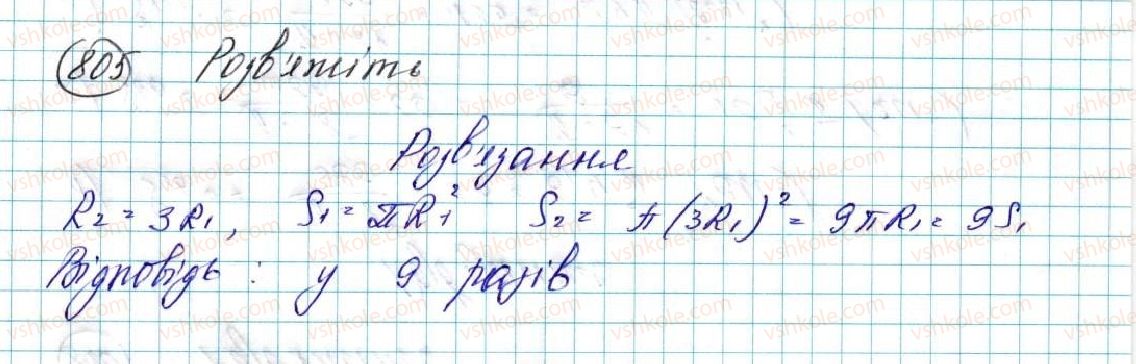 805 Розв'яжіть
Розв'язання
R₂ = 3R₁, S₁ = πR₁² S₂ = π(3R₁)² = 9πR₁ = 9S₁
Відповідь: у 9 разів